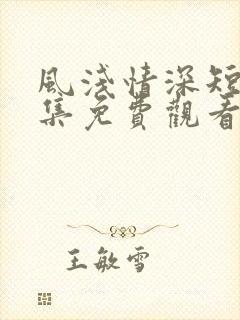 風淺情深短
集免費觀看
王敏雪